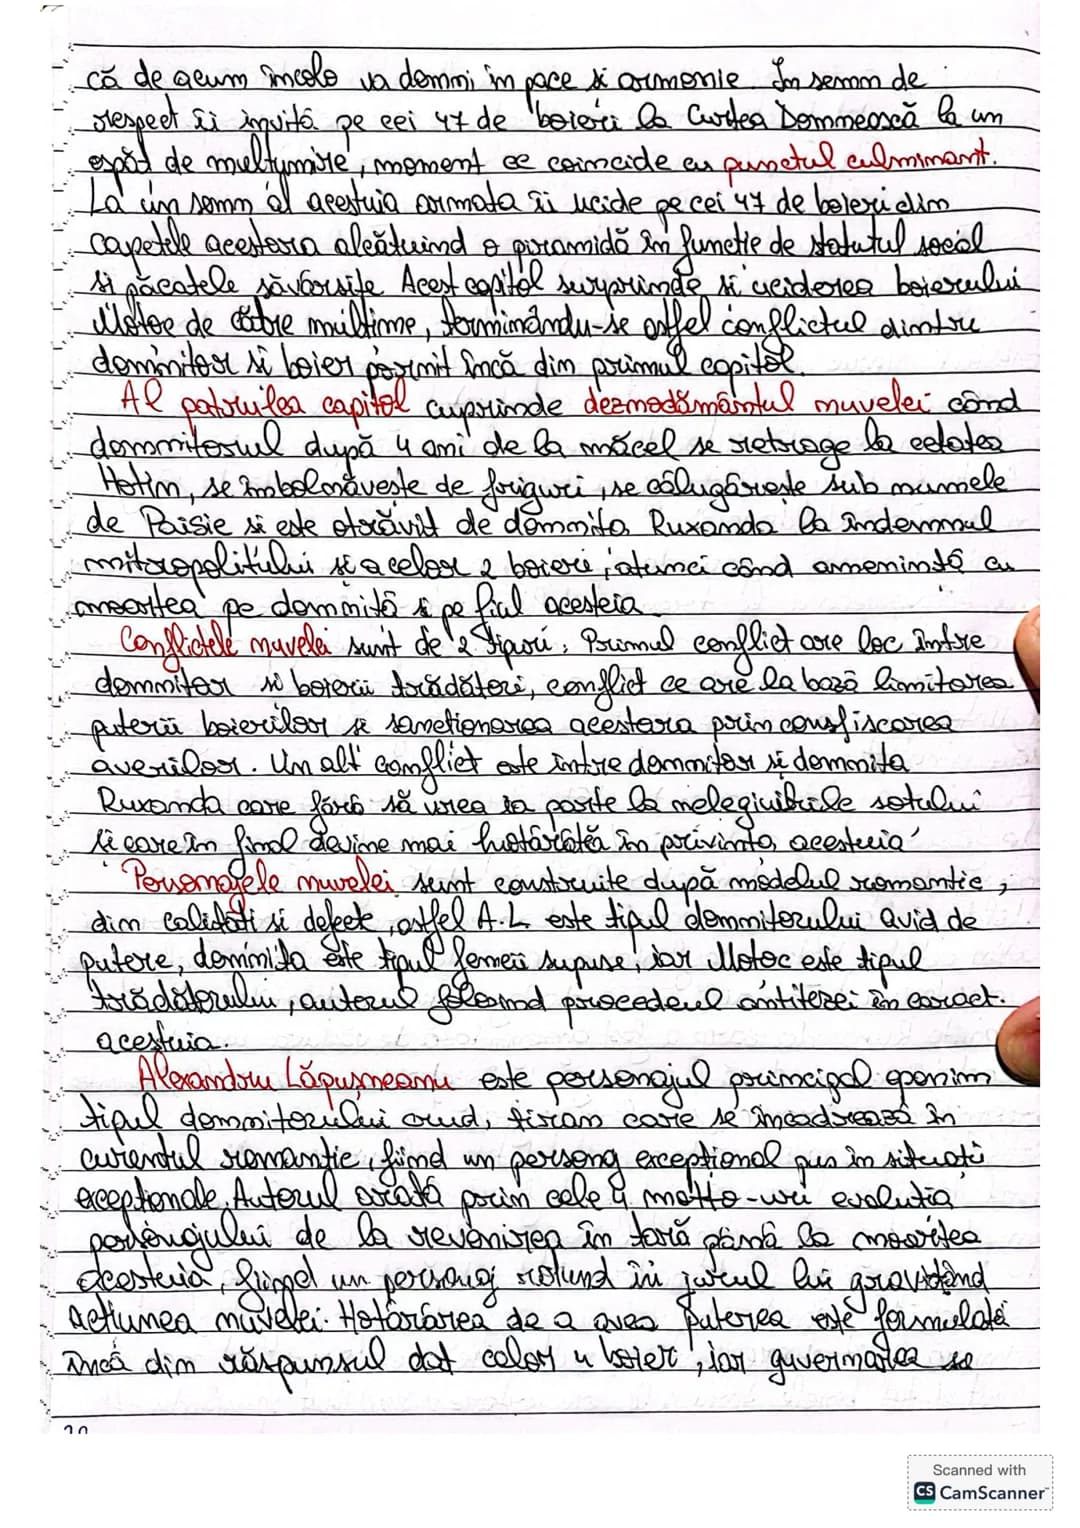 că de acum încolo va domni în pace și armonie. În semn de
respect îi invită pe cei 47 de boieri la Curtea Domnească la un
ospăț de mulțumire, moment ce coincide cu punctul culminant.
La un semn al acestuia armata îi ucide pe cei 47 de boieri din
capetele acestora alcătuind o piramidă în funcție de statutul social
și păcatele săvârsite. Acest capitol surprinde și uciderea boierului
Moțoc de către mulțime, terminându-se astfel conflictul dintre
domnitor și boier pornit încă din primul capitol.
Al patrulea capitol cuprinde deznodământul nuvelei când
domnitorul după 4 ani de la măcel se retrage la cetatea
Hotin, se îmbolnăvește de friguri, se călugărește sub numele
de Paisie și este otrăvit de domnița Ruxanda la îndemnul
mitropolitului și acelor 2 boieri, atunci când amenință cu
moartea pe domniță și pe fiul acesteia
Conflictele nuvelei sunt de 2 tipuri. Primul conflict are loc între
domnitor și boierii trădători, conflict ce are la bază limitarea
puterii boierilor și sancționarea acestora prin consfiscarea
averiilor. Un alt conflict este între domnitor și domnița
Ruxanda care fără să vrea ia parte la nelegiuirile soțului
și care în final devine mai hotărâtă în privința acestuia
Personajele nuvelei sunt construite după modelul romantic,
din calități și defecte, astfel A.L este tipul domnitorului avid de
putere, dominița este tipul femeii supuse, iar Moțoc este tipul
trădătorului, autorul folosind procedeul antitezei în caract.
acestuia.
Alexandru Lăpușneanu este personajul principal eponim
tipul domnitorului crud, tiran care se încadrează în
curentul romantic, fiind un personaj excepțional pus în situații
excepționale. Autorul arată prin cele 4 motto-uri evoluția
personajului de la revenirea în țară până la moartea
acestuia, fiind un personaj rotund în jurul lui gravitând
acțiunea nuvelei. Hotărârea de a avea puterea este formulată
încă din răspunsul dat celor 4 boieri, iar guvernarea se
20
Scanned with
CS CamScanner